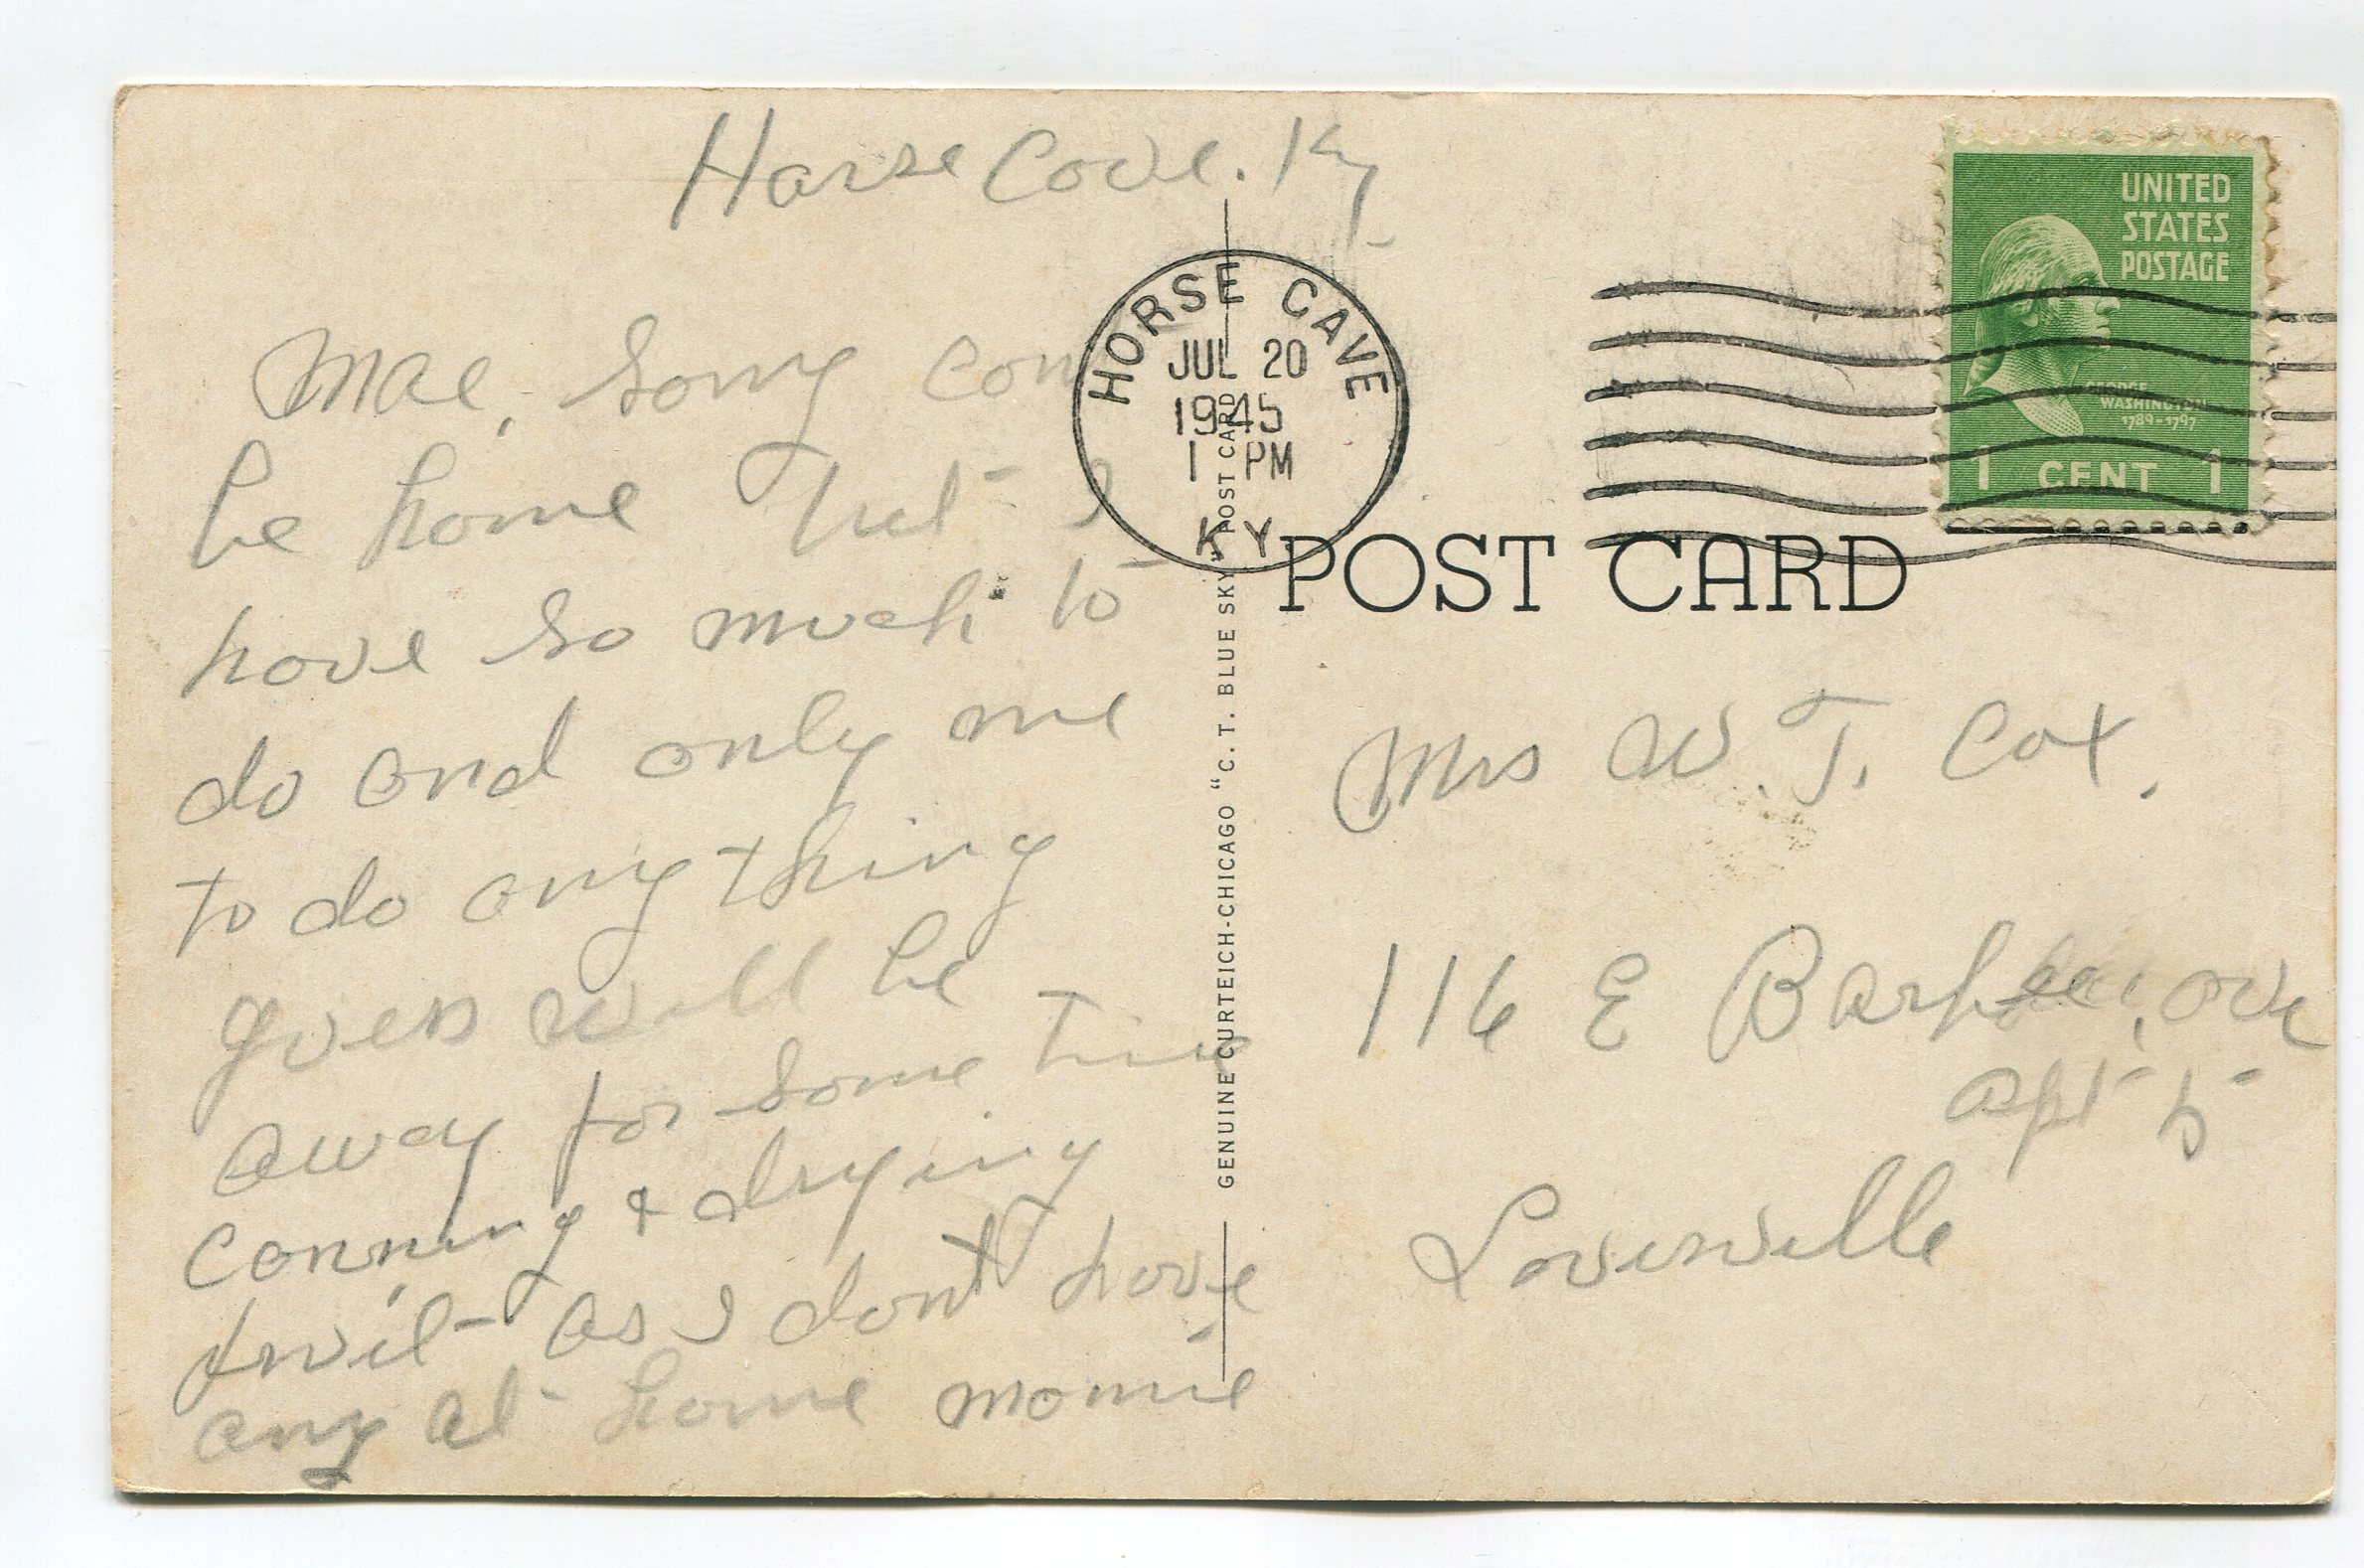 Horse Cave. Ky
Mae, sorry
be home but I
have so much to
do and only me
to do anything
guess will be
away for some time
canning & drying
fruit as I dont have
any at home
HORSE CAVE
JUL 20
1945
1 PM
KY
UNITED
STATES
POSTAGE
WASHINGTON
1789-1797
1 CENT 1
POST CARD
GENUINE CURTEICH-CHICAGO "C. T. BLUE SKY" POST CARD
Mrs W. T. Cox.
116 E ave
apt 5
Louisville